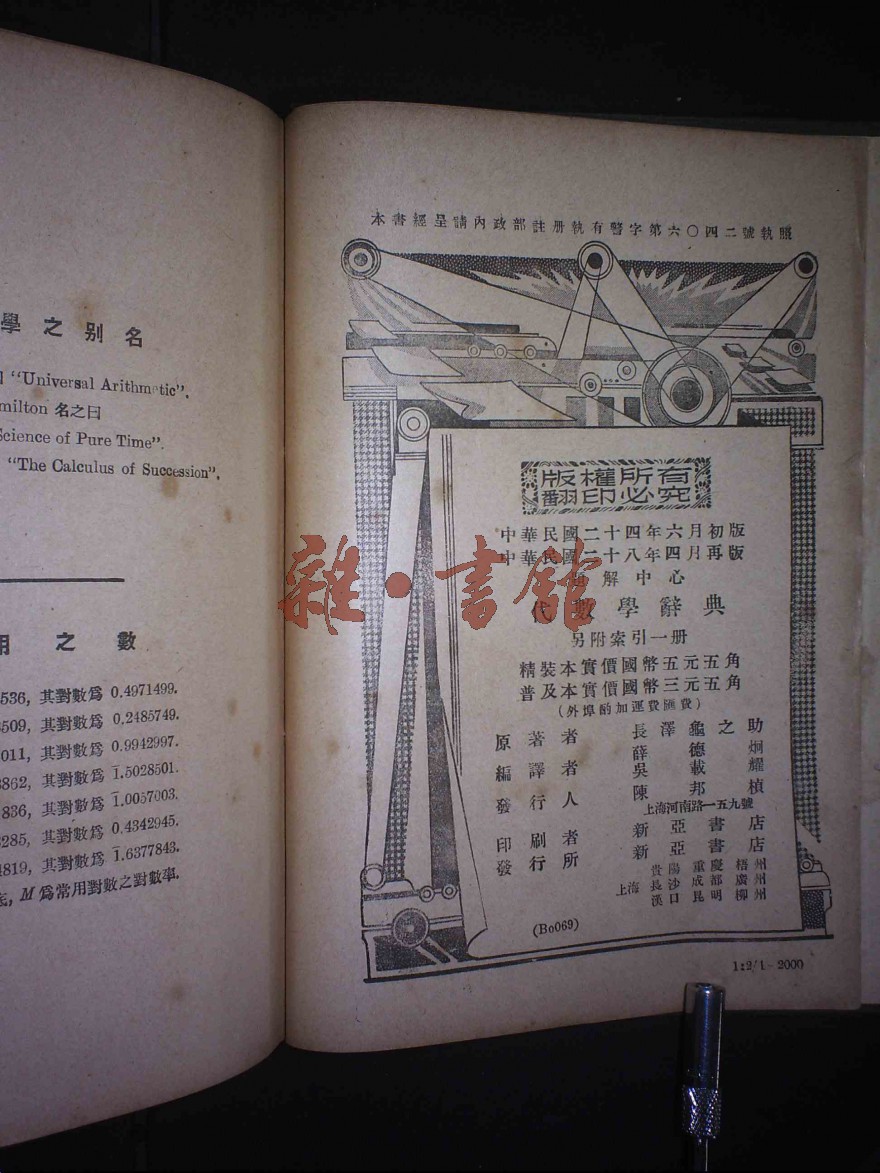 學之别名
“Universal Arithmetic”.
milton 名之曰
Science of Pure Time”.
“The Calculus of Succession”.
用之數
536, 其對數爲 0.4971499.
509, 其對數爲 0.2485749.
011, 其對數爲 0.9942997.
862, 其對數爲 1̅.5028501.
836, 其對數爲 1̅.0057003.
285, 其對數爲 0.4342945.
4819, 其對數爲 1̅.6377843.
底, M 爲常用對數之對數率.
本書經呈請內政部註册執有警字第六〇四二號執照
版權所有
翻印必究
中華民國二十四年六月初版
中華民國二十八年四月再版
題解中心
代數學辭典
另附索引一册
精裝本實價國幣五元五角
普及本實價國幣三元五角
(外埠酌加運費匯費)
原著者 長澤龜之助
編譯者 薛德炯
吳載耀
發行人 陳邦楨
上海河南路一五九號
印刷者 新亞書店
發行所 新亞書店
貴陽 重慶 梧州
上海 長沙 成都 廣州
漢口 昆明 柳州
(Bo069)
1:2/1-2000
雜·書館